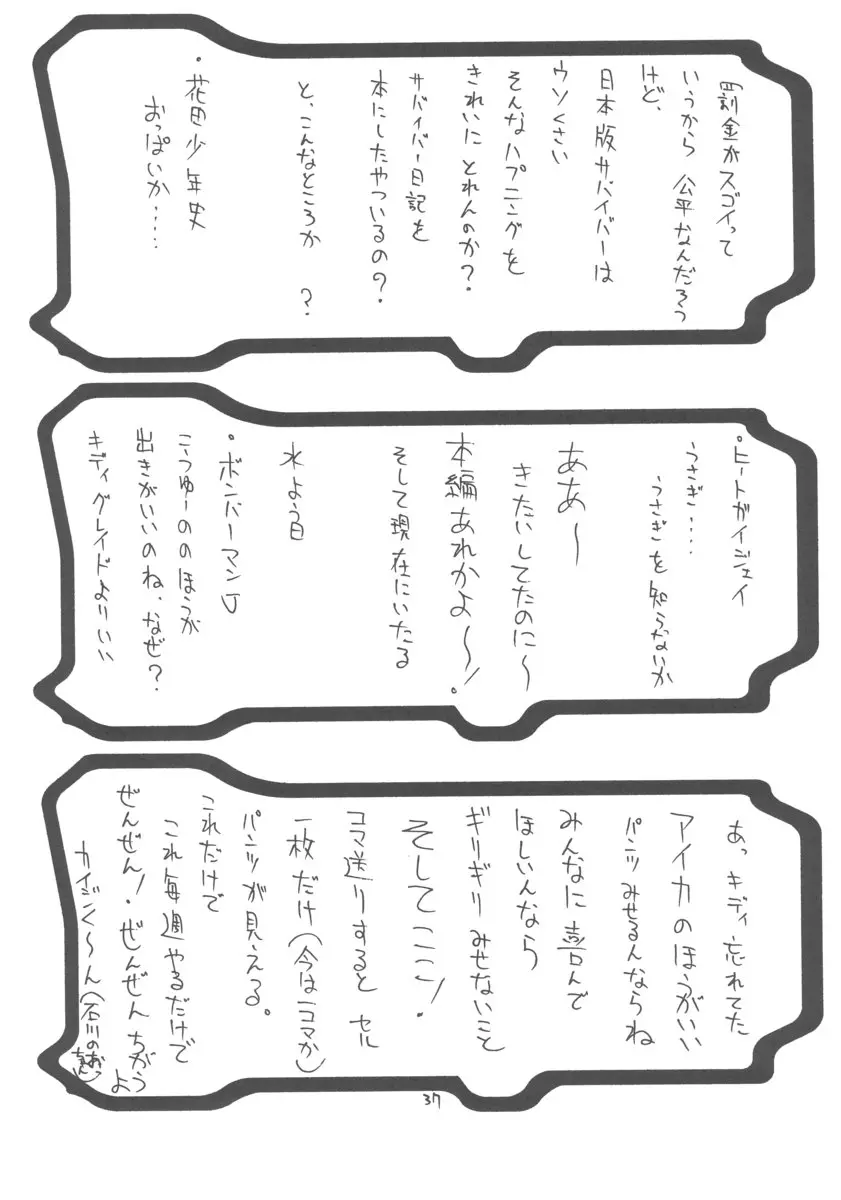 罰金がスゴイって
いうから 公平なんだろう
けど、
日本版サバイバーは
ウソくさい
そんなハプニングを
きれいに とれんのか?
サバイバー日記を
本にしたやついるの?
と、こんなところか ?
・花田少年史
おっぱいか・・・・・
・ヒートガイジェイ
うさぎ・・・
うさぎを知らないか
ああ〜
きたいしてたのに〜
本編あれかよ〜!。
そして現在にいたる
水よう日
・ボンバーマンJ
こうゆーののほうが
出きがいいのね、なぜ?
キディグレイドよりいい
あっ キディ忘れてた
アイカのほうがいい
パンツみせるんならね
みんなに喜んで
ほしいんなら
ギリギリみせないこと
そしてここ!
コマ送りすると セル
一枚だけ(今は一コマか)
パンツが見える。
これだけで
これ毎週やるだけで
ぜんぜん!・ぜんぜんちがうよ
カイジンく〜ん(石川のおっちゃん)
37